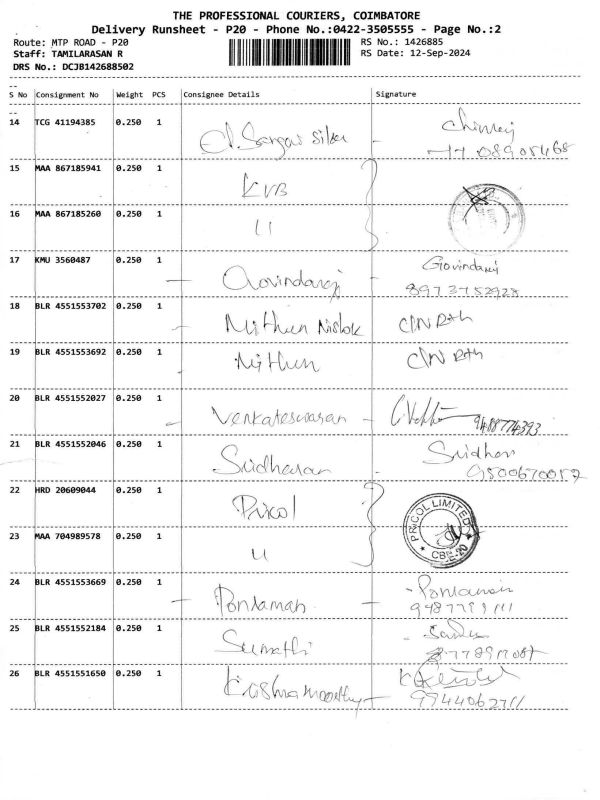 THE PROFESSIONAL COURIERS, COIMBATORE
Delivery Runsheet - P20 - Phone No.:0422-3505555 - Page No.:2
Route: MTP ROAD - P20
RS No.: 1426885
Staff: TAMILARASAN R
RS Date: 12-Sep-2024
DRS No.: DCJB142688502
S No Consignment No Weight PCS Consignee Details Signature
14 TCG 41194385 0.250 1
15 MAA 867185941 0.250 1 KVB
16 MAA 867185260 0.250 1 11
17 KMU 3560487 0.250 1 Govindaraj Govindaraj
8973752928
18 BLR 4551553702 0.250 1 Mithun
19 BLR 4551553692 0.250 1 Mithun
20 BLR 4551552027 0.250 1 Venkateswaran
9488774393
21 BLR 4551552046 0.250 1 Sridharan Sridhar
9500670057
22 HRD 20609044 0.250 1 Pricol PRICOL LIMITED
23 MAA 704989578 0.250 1 11 CBE-20
24 BLR 4551553669 0.250 1 Ponraman
25 BLR 4551552184 0.250 1 Sumathi
26 BLR 4551551650 0.250 1 Krishnamoorthy
9944062711